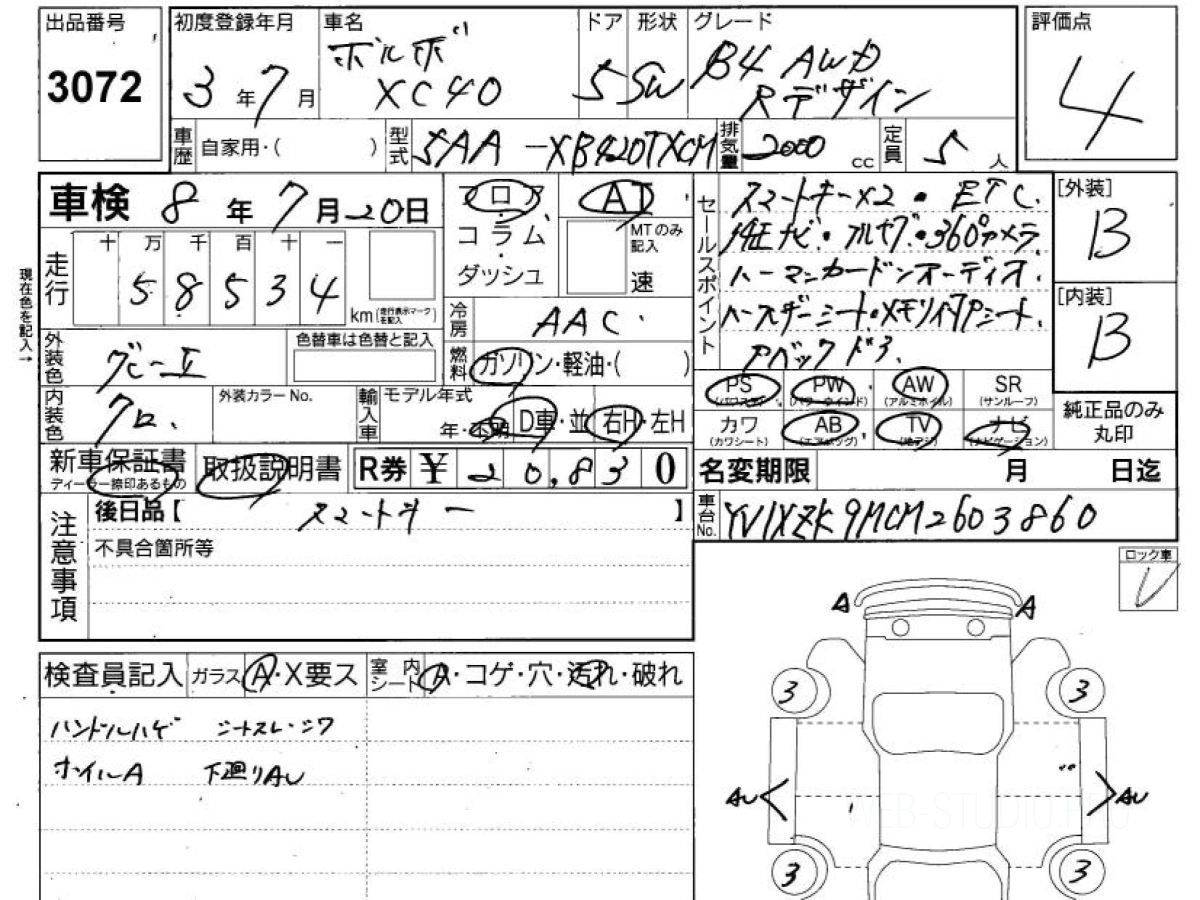 出品番号
3072
初度登録年月
3年7月
車名
ボルボ
XC40
ドア
5
形状
SW
グレード
B4 AWD
Rデザイン
評価点
4
車歴
自家用・( )
型式
5AA-XB420TXCM
排気量
2000cc
定員
5人
車検 8年7月20日
フロア
コラム
ダッシュ
AT
MTのみ記入
速
セールスポイント
スマートキー×2・ETC.
純正ナビ・アルサラ・360°カメラ
ハーマンカードンオーディオ.
ハーフレザーシート・メモリ付Pシート.
Pバックドア.
[外装]
B
[内装]
B
現在色を記入→
走行
十 万 千 百 十 一
5 8 5 3 4
km(走行表示マークを記入)
冷房
AAC
外装色
グレーⅡ
色替車は色替と記入
燃料
ガソリン・軽油・( )
PS
(パワステ)
PW
(パワーウインド)
AW
(アルミホイル)
SR
(サンルーフ)
カワ
(カワシート)
AB
(エアバッグ)
TV
(地デジ)
ナビ
(ナビゲーション)
純正品のみ
丸印
内装色
クロ.
外装カラーNo.
輸入車
モデル年式
年・不明
D車・並
右H・左H
新車保証書
ディーラー捺印あるもの
取扱説明書
R券 ¥ 20,830
名変期限 月 日迄
注意事項
後日品【 スマートキー 】
不具合箇所等
車台No.
YV1XZK9MCM2603860
ロック車
レ
検査員記入
ガラス A・X要ス
室内シート A・コゲ・穴・汚れ・破れ
ハンドルハゲ シートスレ・シワ
ホイルA 下廻りAU
A A
3 3
AU AU
3 3
WEB-STUDIO.PRO